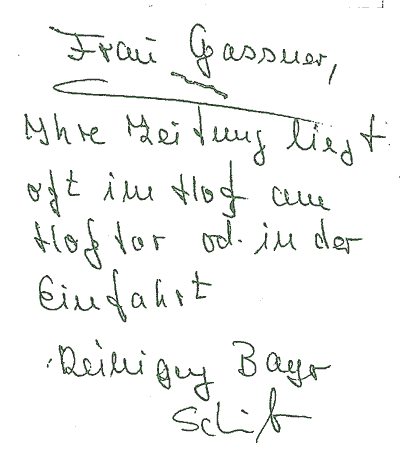 Frau Gassner,
Ihre Zeitung liegt
oft im Hof am
Hoftor od. in der
Einfahrt
Reinigung Bayr